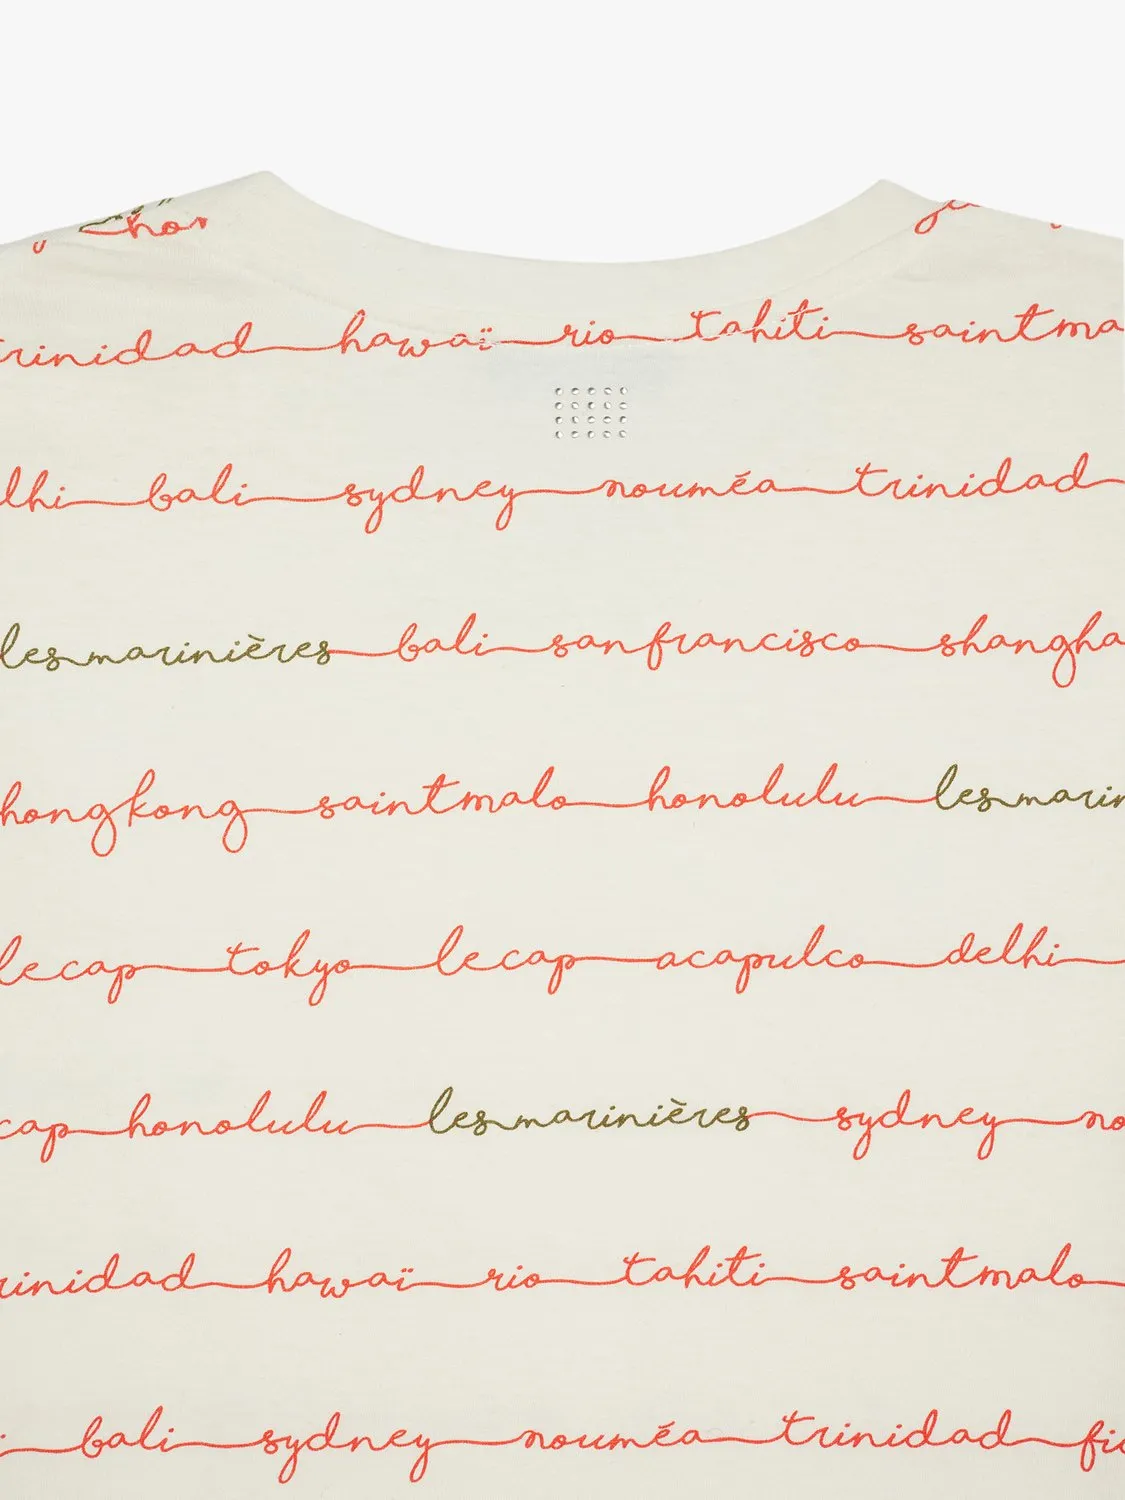 trinidad hawaï rio tahiti saintma
lhi bali sydney nouméa trinidad
lesmarinières bali sanfrancisco shangha
hongkong saintmalo honolulu lesmarin
lecap tokyo lecap acapulco delhi
cap honolulu lesmarinières sydney no
rinidad hawaï rio tahiti saintmalo
i bali sydney nouméa trinidad